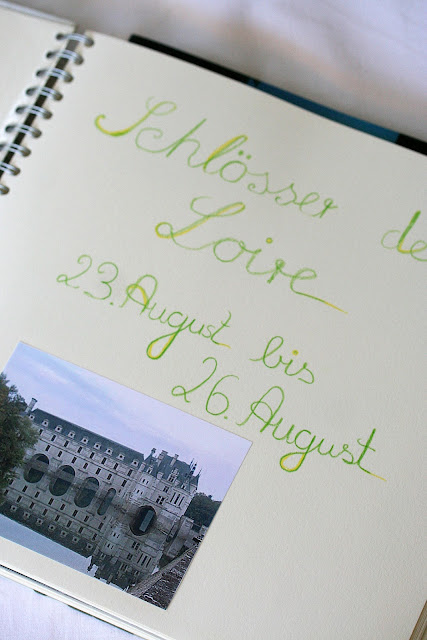 Schlösser de
Loire
23. August bis
26. August